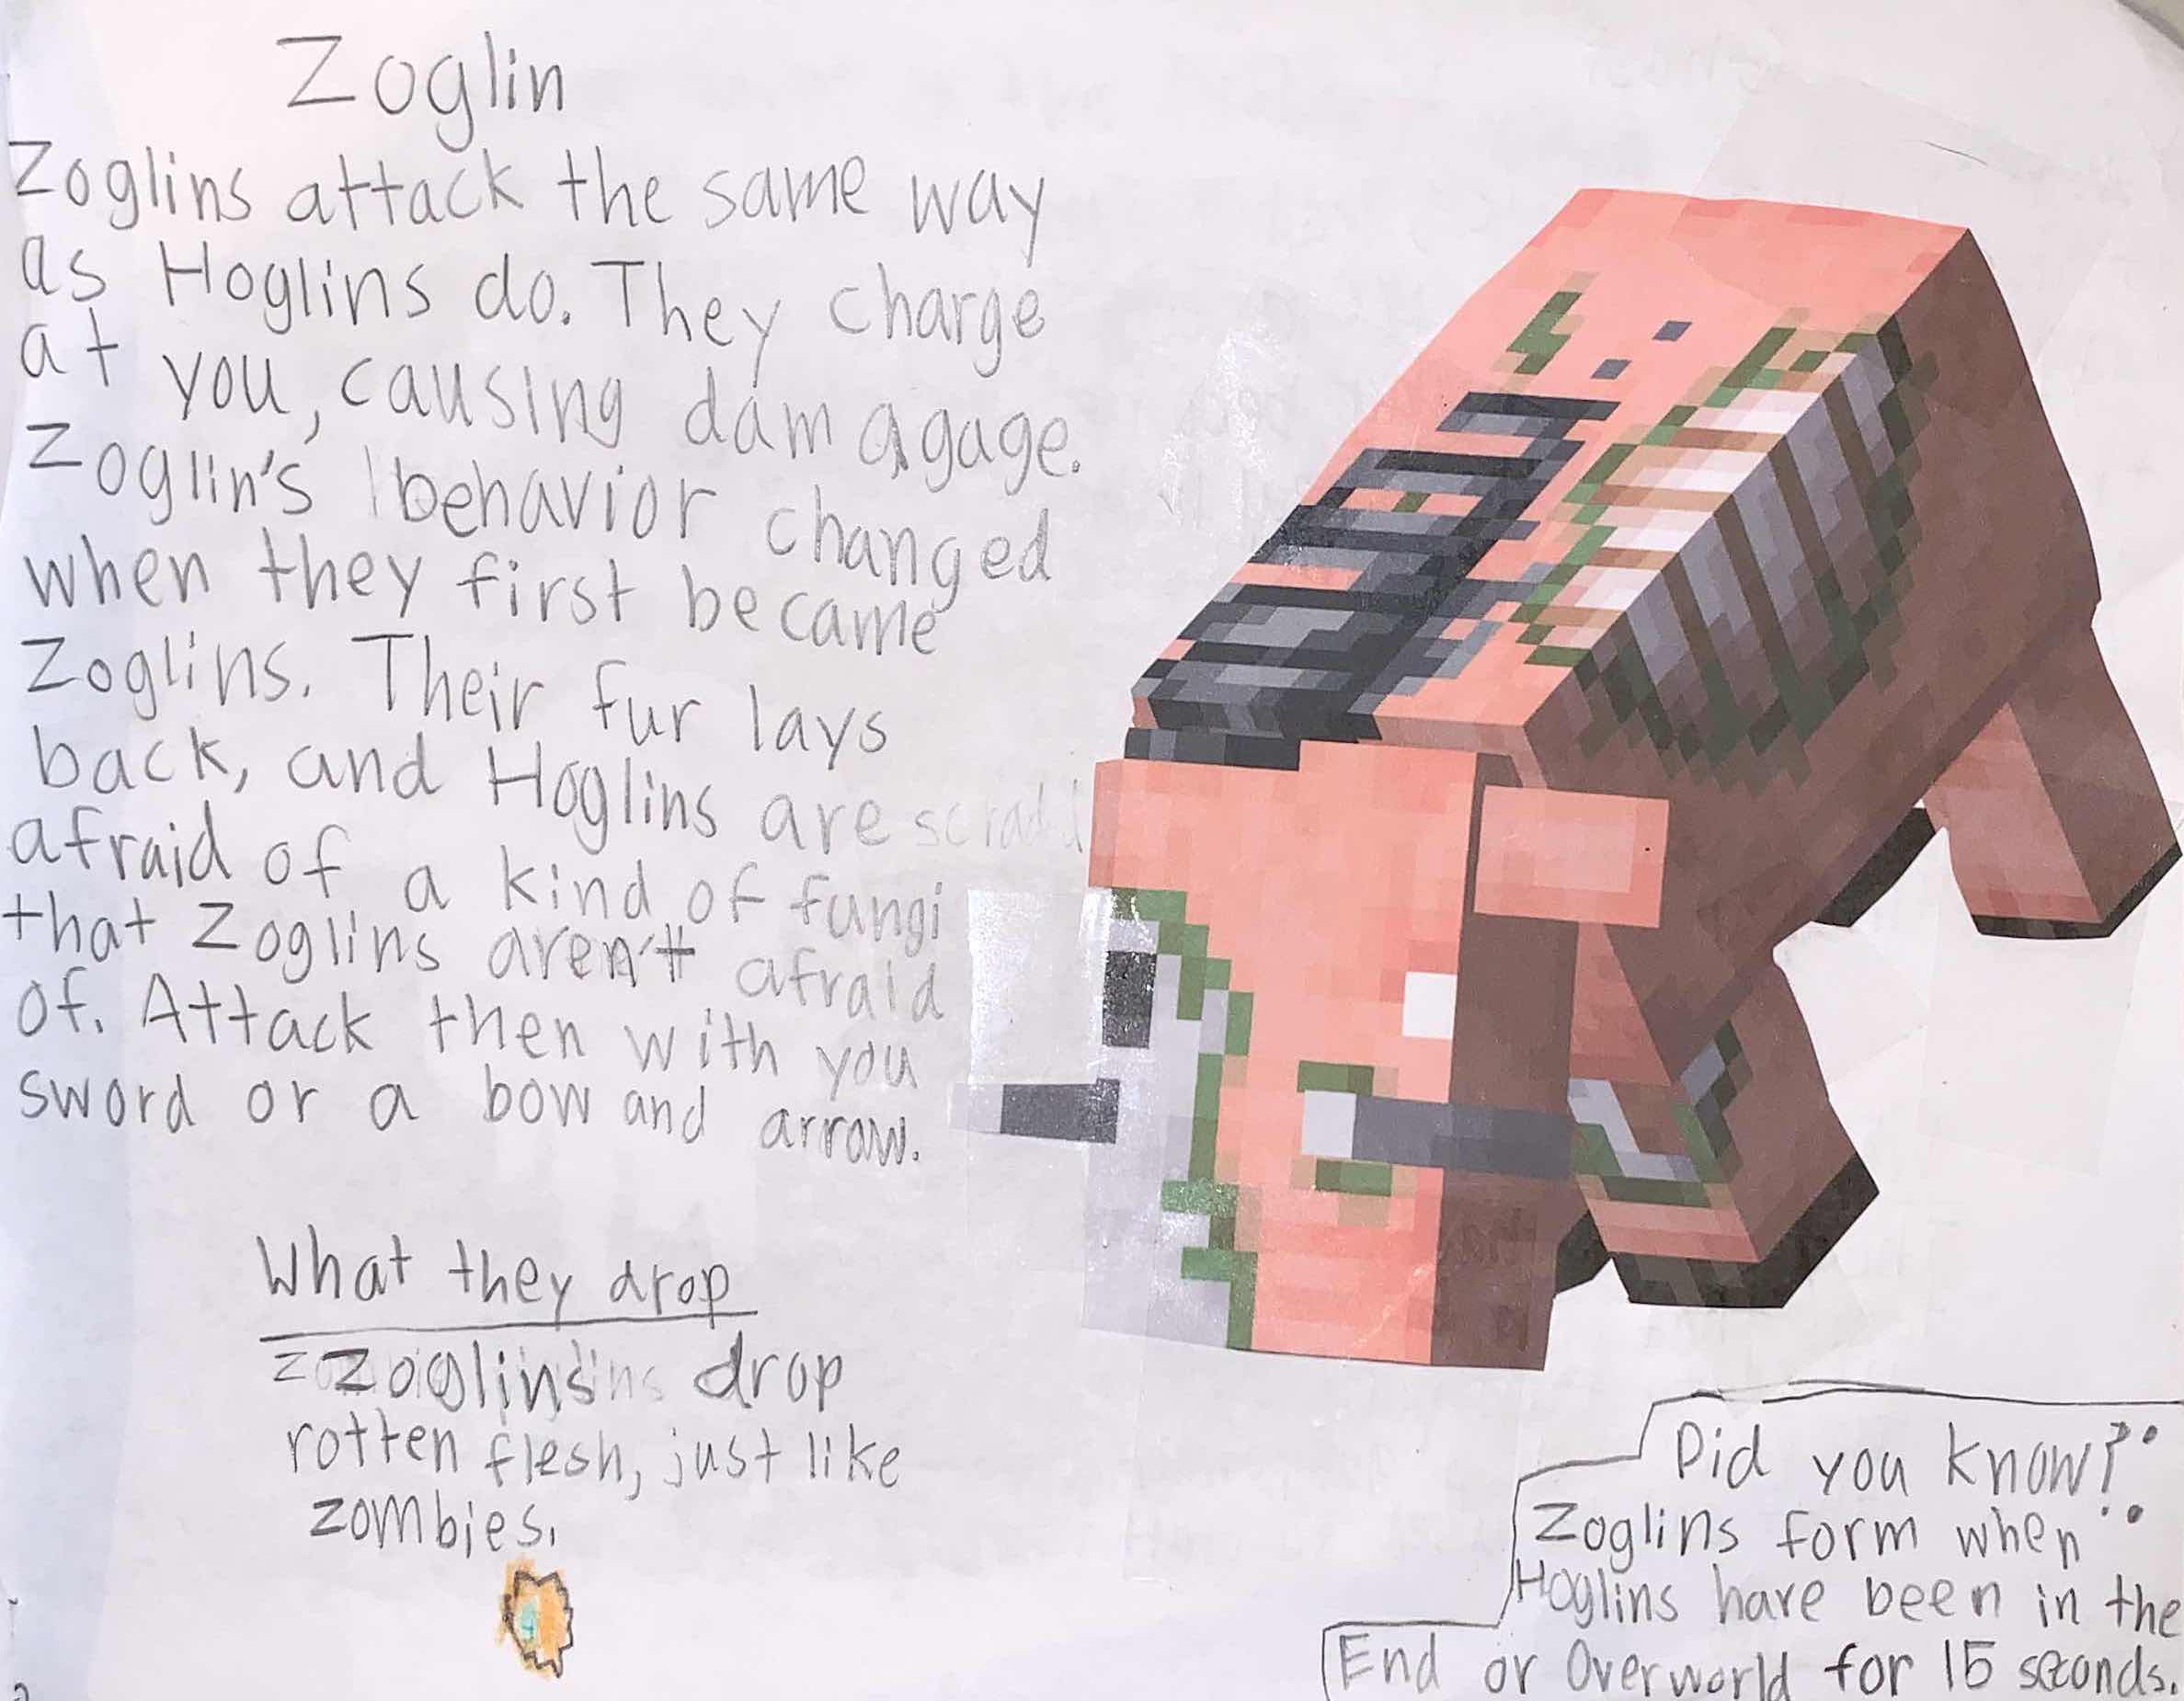 Zoglin
Zoglins attack the same way
as Hoglins do. They charge
at you, causing damagage.
Zoglin's behavior changed
when they first became
Zoglins. Their fur lays
back, and Hoglins are
afraid of a kind of fungi
that Zoglins aren't afraid
of. Attack then with you
sword or a bow and arrow.
What they drop
Zoglins drop
rotten flesh, just like
zombies.
Did you know?
Zoglins form when
Hoglins have been in the
End or Overworld for 15 seconds.